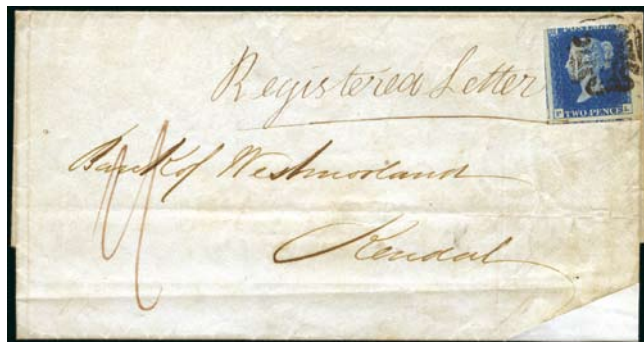 POSTAGE
Registered Letter
TWO PENCE
Bank of Westmorland
Kendal